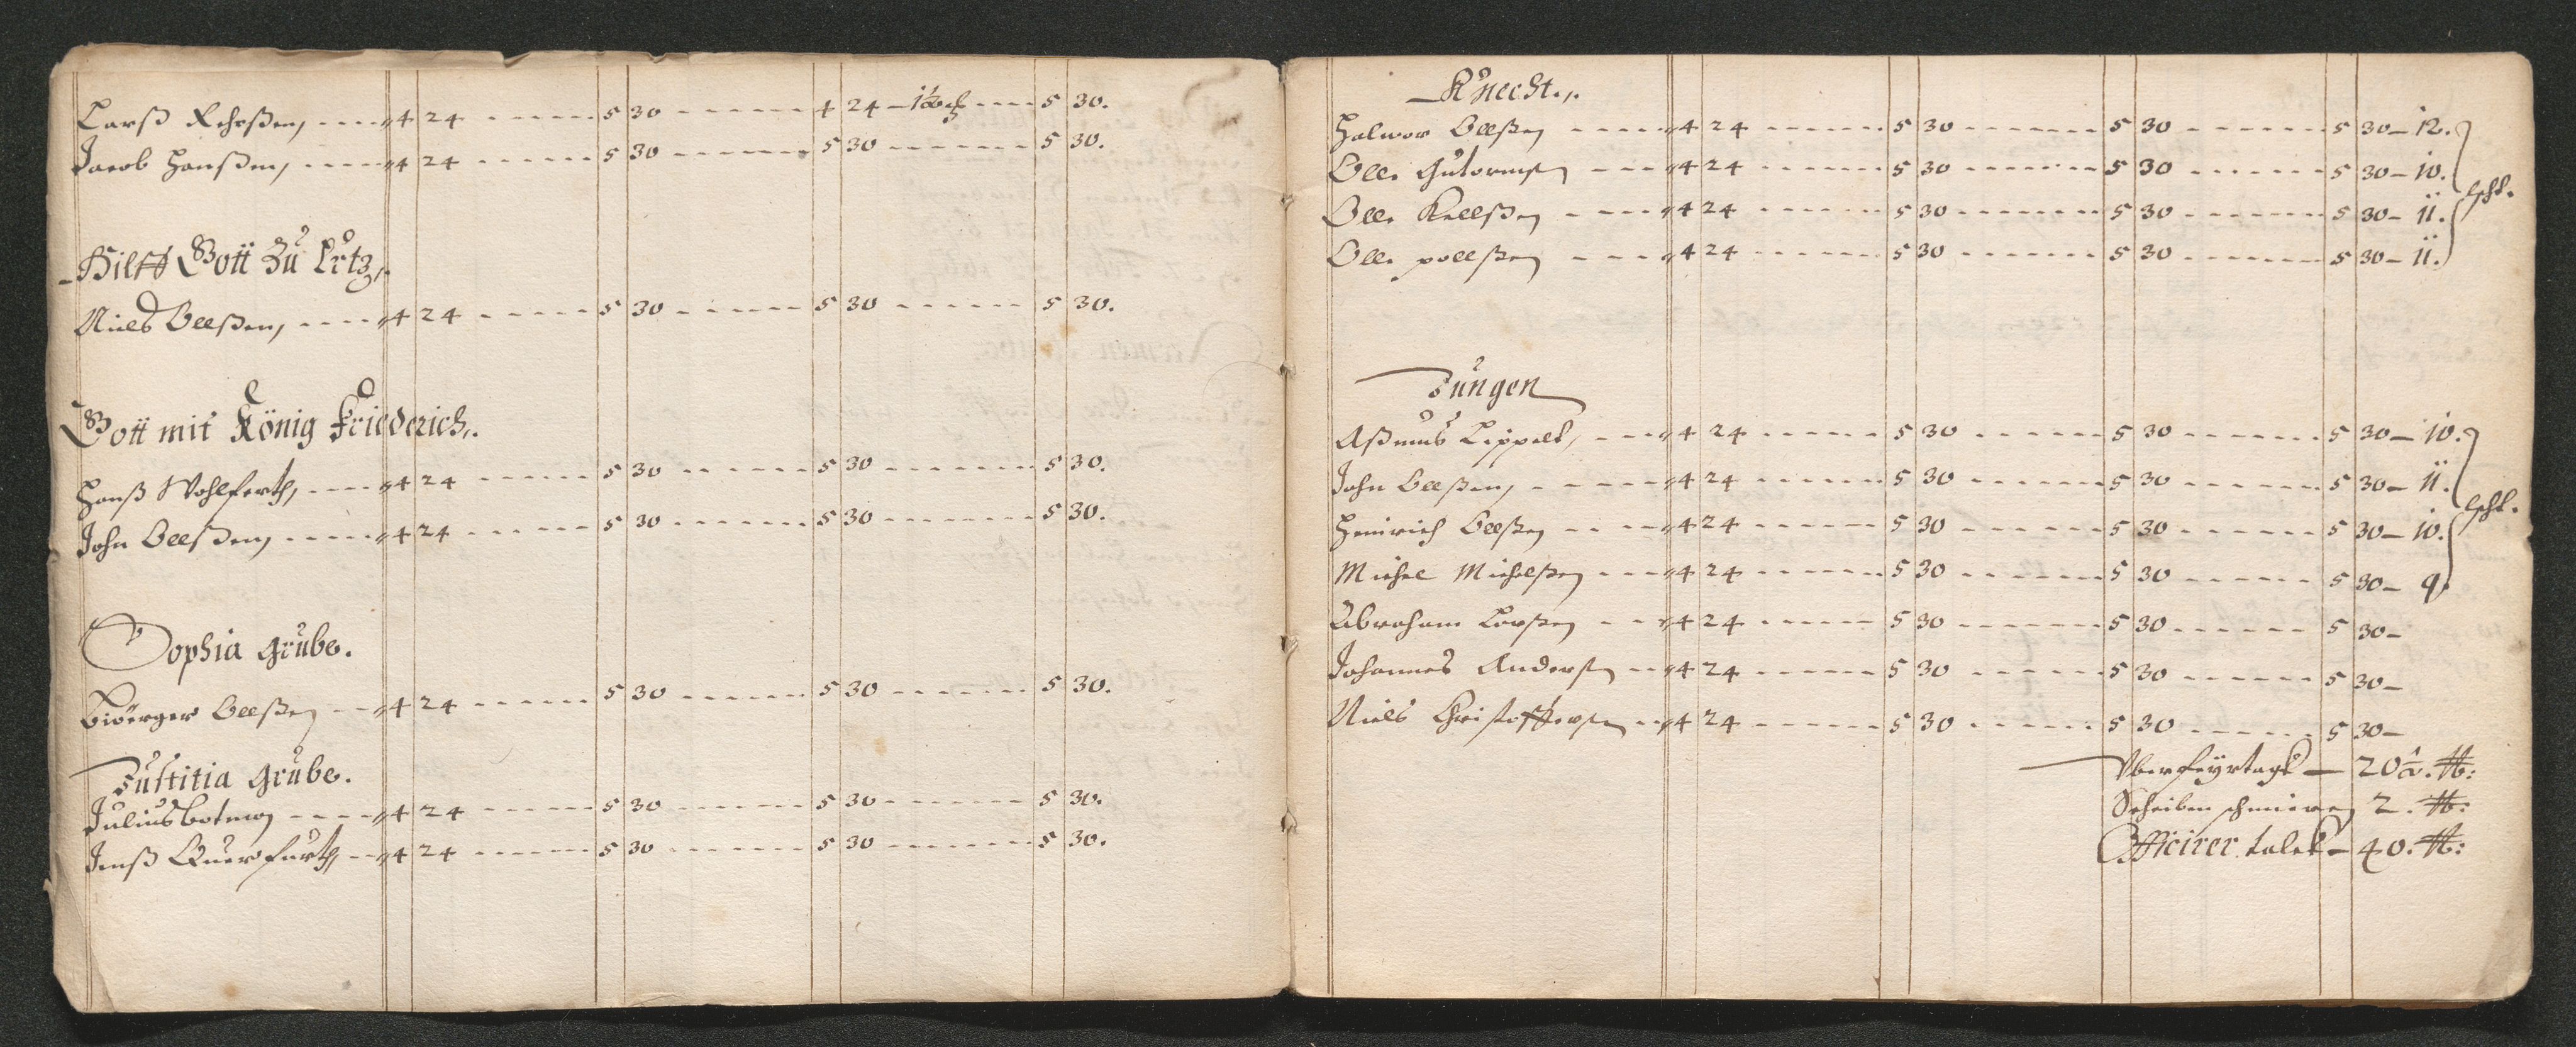 Larß Rehrßen, - - - - 4 24 - - - - - - 5 30 - - - - - - 4 24 - 1½ - - - - 5 30.
Jacob Hanßen, - - - - 4 24 - - - - - - 5 30 - - - - - - 5 30 - - - - - - 5 30.
Hilff Gott Zu Ertz,.
Niels Olleßen, - - - - 4 24 - - - - - 5 30 - - - - - - 5 30 - - - - - - 5 30.
Gott mit König Friederich,.
Hanß Wohlferth, - - - - 4 24 - - - - - 5 30 - - - - - - 5 30 - - - - - - 5 30.
John Olleßen, - - - - - 4 24 - - - - - 5 30 - - - - - - 5 30 - - - - - - 5 30.
Sophia Grube.
Biörger Olleßen - - 4 24 - - - - - - 5 30 - - - - - - 5 30 - - - - - - 5 30.
Justitia Grube.
Julius botmer - - - - 4 24 - - - - - - 5 30 - - - - - - 5 30 - - - - - - 5 30.
Jenß Querfurth, - - 4 24 - - - - - - 5 30 - - - - - - 5 30 - - - - - - 5 30.
Knecht,.
Halwor Olleßen - - - - - 4 24 - - - - - - 5 30 - - - - - - 5 30 - - - - - - 5 30 - 12.
Olle Gutormsen - - - 4 24 - - - - - - 5 30 - - - - - - 5 30 - - - - - - 5 30 - 10.
schl.
Olle Kellßen - - - - 4 24 - - - - - - 5 30 - - - - - - 5 30 - - - - - - 5 30 - 11.
Olle pollßen - - - - 4 24 - - - - - - 5 30 - - - - - - 5 30 - - - - - - 5 30 - 11.
Jungen
Aßmus Lippelt, - - - 4 24 - - - - - - 5 30 - - - - - - 5 30 - - - - - - 5 30 - 10.
John Olleßen, - - - - - 4 24 - - - - - - 5 30 - - - - - - 5 30 - - - - - - 5 30 - 11.
schl.
Heinrich Olleßen - - - - 4 24 - - - - - - 5 30 - - - - - - 5 30 - - - - - - 5 30 - 10.
Michel Michelßen - - - 4 24 - - - - - - 5 30 - - - - - - 5 30 - - - - - - 5 30 - 9.
Abraham Larßen - - - 4 24 - - - - - - 5 30 - - - - - - 5 30 - - - - - - 5 30 -
Johannes Andersen - - 4 24 - - - - - - 5 30 - - - - - - 5 30 - - - - - - 5 30 -
Niels Christoffersen - - 4 24 - - - - - - 5 30 - - - - - - 5 30 - - - - - - 5 30 -
Uber feyrtags - 20 ℔:
Scheiben schmieren 2. ℔:
Officirer talck - 40. ℔: